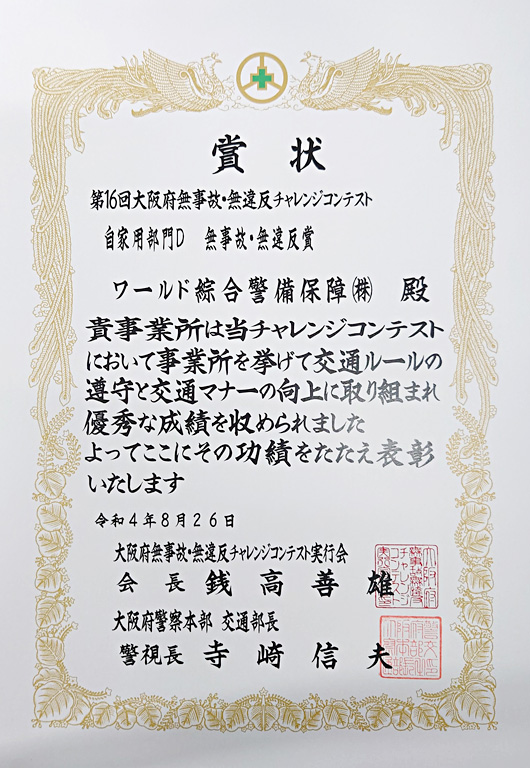 賞状
第16回大阪府無事故・無違反チャレンジコンテスト
自家用部門D 無事故・無違反賞
ワールド綜合警備保障㈱ 殿
貴事業所は当チャレンジコンテスト
において事業所を挙げて交通ルールの
遵守と交通マナーの向上に取り組まれ
優秀な成績を収められました
よってここにその功績をたたえ表彰
いたします
令和4年8月26日
大阪府無事故・無違反チャレンジコンテスト実行会
会長 銭高善雄
大阪府警察本部 交通部長
警視長 寺﨑信夫